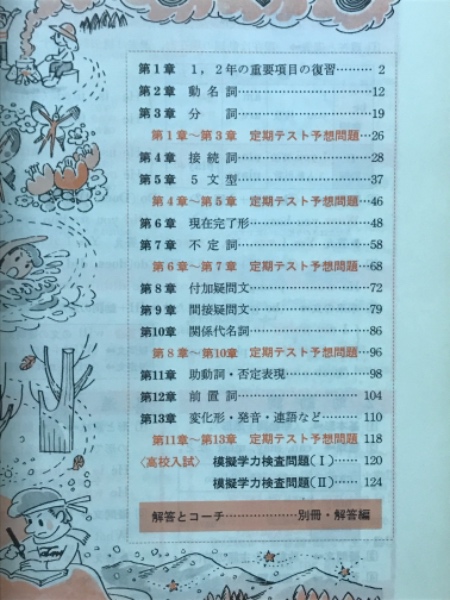 第1章 1,2年の重要項目の復習………2
第2章 動名詞………………12
第3章 分詞………………19
第1章～第3章 定期テスト予想問題…26
第4章 接続詞………………28
第5章 5文型………………37
第4章～第5章 定期テスト予想問題…46
第6章 現在完了形……………48
第7章 不定詞………………58
第6章～第7章 定期テスト予想問題…68
第8章 付加疑問文……………72
第9章 間接疑問文……………79
第10章 関係代名詞……………86
第8章～第10章 定期テスト予想問題…96
第11章 助動詞・否定表現…………98
第12章 前置詞………………104
第13章 変化形・発音・連語など……110
第11章～第13章 定期テスト予想問題 118
〈高校入試〉 模擬学力検査問題(Ⅰ)……120
模擬学力検査問題(Ⅱ)……124
解答とコーチ………………別冊・解答編